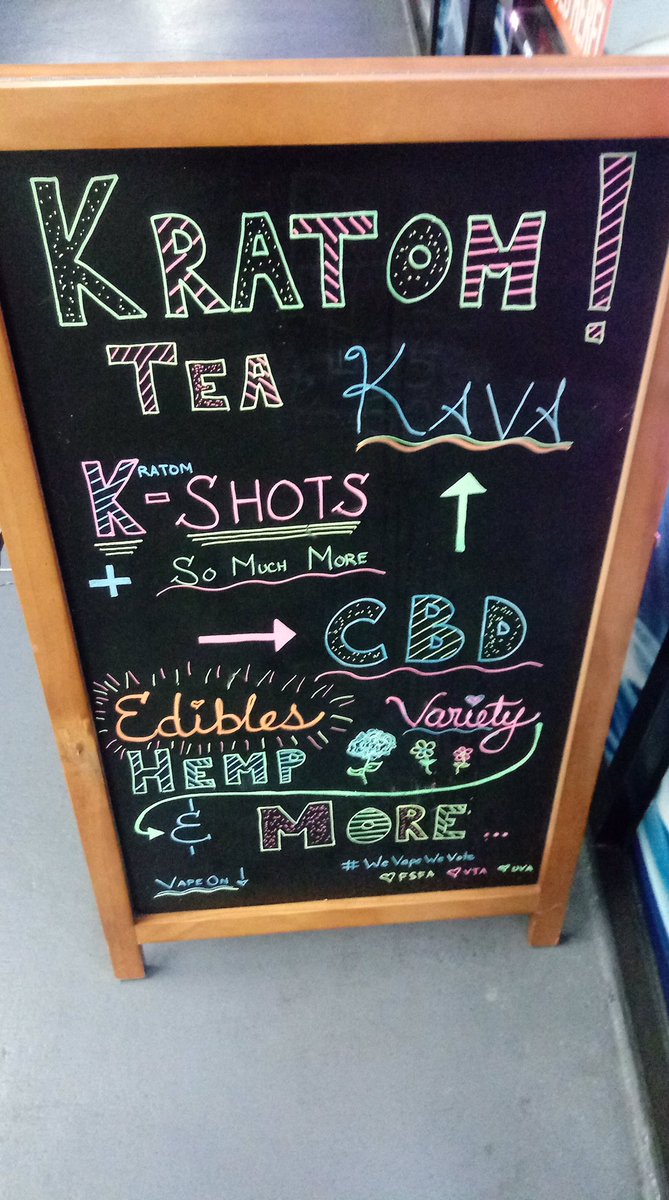 KRATOM!
TEA KAVA
KRATOM-SHOTS
+ SO MUCH MORE
CBD
Edibles Variety
HEMP
& MORE...
#WeVapeWeVote
VAPE ON FSFA VTA UVA